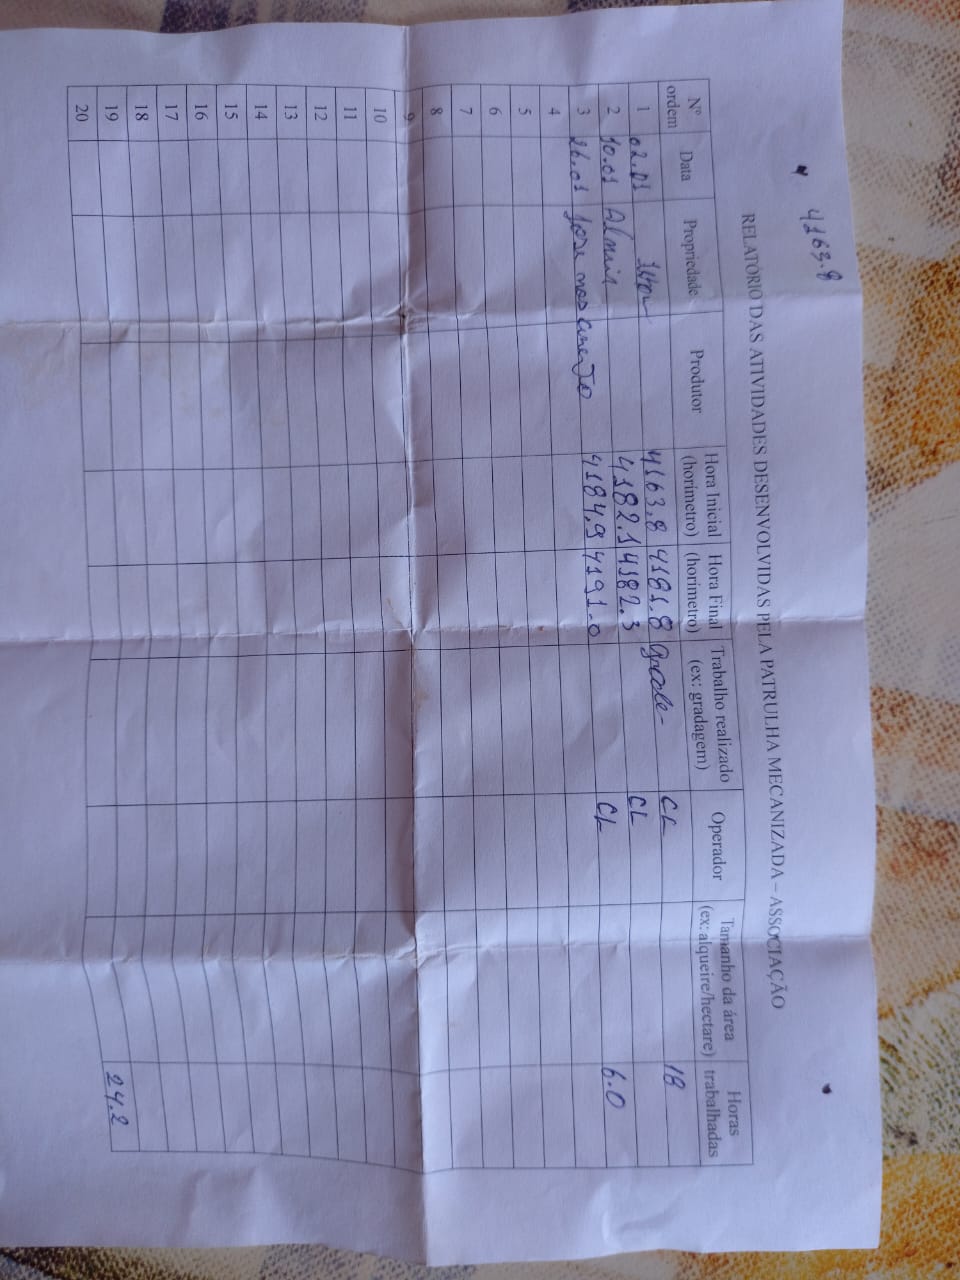 4163.8
RELATÓRIO DAS ATIVIDADES DESENVOLVIDAS PELA PATRULHA MECANIZADA – ASSOCIAÇÃO
Nº ordem Data Propriedade Produtor Hora Inicial (horimetro) Hora Final (horimetro) Trabalho realizado (ex: gradagem) Operador Tamanho da área (ex: alqueire/hectare) Horas trabalhadas
1 02.01 4163.8 4181.8 CL 18
2 10.01 4182.1 4182.3 CL
3 26.01 Jose nascimento 4184.9 4191.0 CL 6.0
4
5
6
7
8
9
10
11
12
13
14
15
16
17
18
19
20 24.2